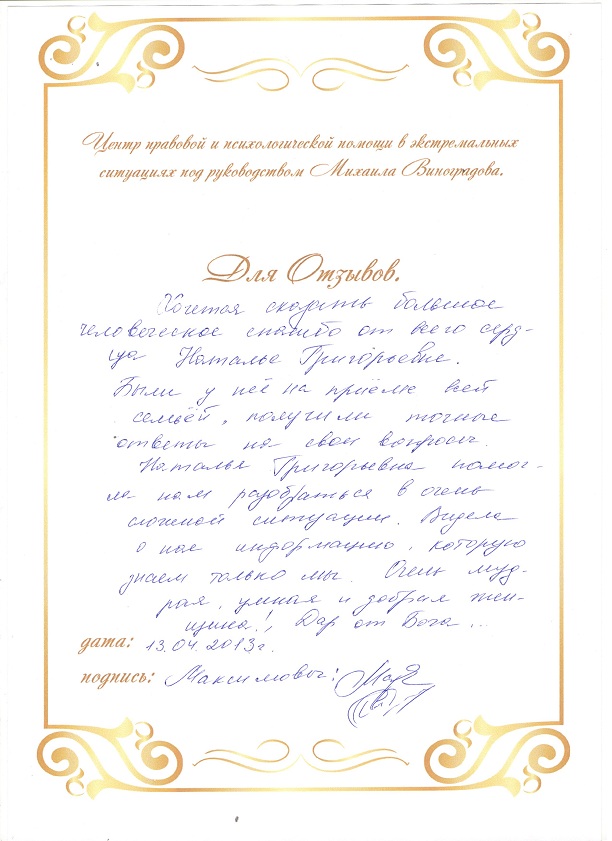 Центр правовой и психологической помощи в экстремальных
ситуациях под руководством Михаила Виноградова.
Для Отзывов.
Хочется сказать большое
человеческое спасибо от всего серд-
ца Наталье Григорьевне.
Были у неё на приёме всей
семьёй, получили точные
ответы на свои вопросы.
Наталья Григорьевна помог-
ла нам разобраться в очень
сложной ситуации. Видела
о нас информацию, которую
знаем только мы. Очень муд-
рая, умная и добрая жен-
щина!, Дар от Бога...
дата: 13.04.2013г.
подпись: Максимовы: